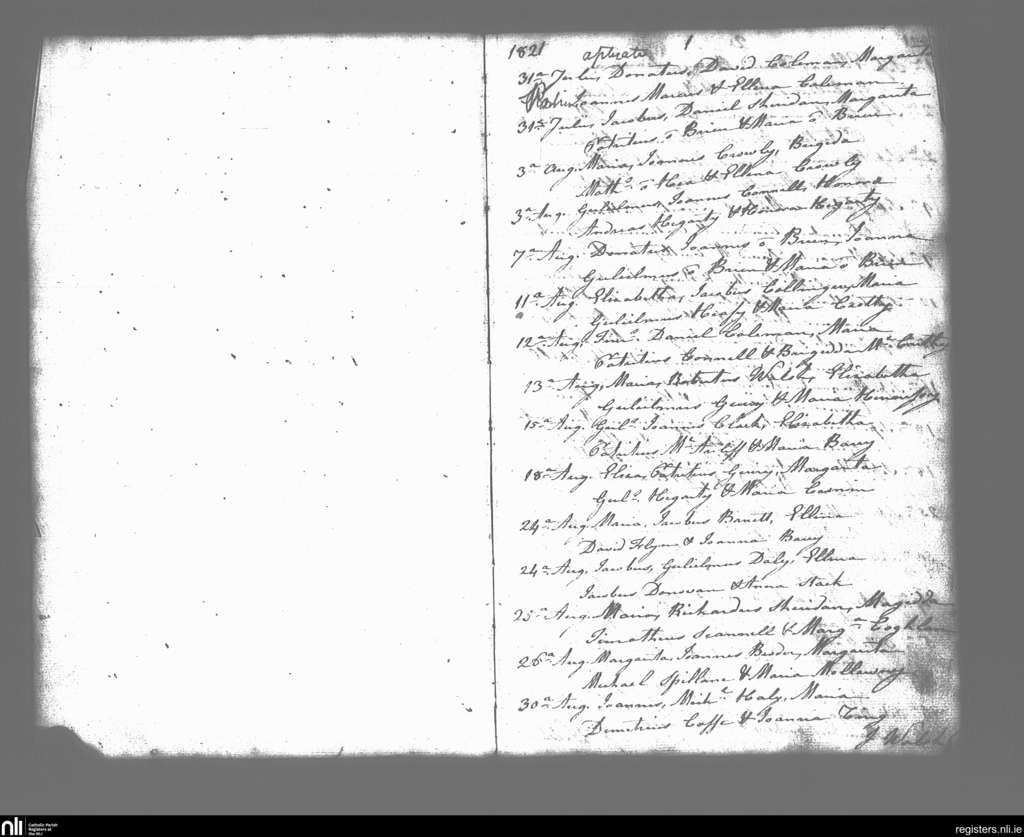 1821 1
31a Julii, Donatus, David Coleman, Margarita
Ioannes Marcus & Ellina Coleman
31a Julii Jacobus, Daniel Sheridan, Margarita
Patritius ō Brien & Maria ō Brien
3a Aug. Maria, Ioannes Crowly, Brigida
Math. ō Hea & Ellina Crowly
3a Aug. Gulielmus, Ioannes Connell, Honora
Andreas Hegarty & Honora Hegarty
7a Aug. Donatus Ioannes ō Brien, Ioanna
Gulielmus ō Brien & Maria ō Brien
11a Aug. Elizabetha, Jacobus Maria
Gulielmus & Maria
12a Aug. Daniel Coleman, Maria
Patritius Connell & Brigidda Mc Carthy
13a Aug. Maria, Robertus Walsh, Elizabetha
Gulielmus Geary & Maria
15a Aug. Gulo Ioannes Clark, Elizabetha
Patritius Mc Auliff & Maria Barry
18a Aug. Eliza, Patritius Geary, Margarita
Gulo. Hegarty & Maria
24a Aug. Maria, Jacobus Barrett, Ellina
David Flynn & Ioanna Barry
24a Aug. Jacobus, Gulielmus Daly, Ellina
Jacobus Donovan & Anna Stack
25a Aug. Maria, Richardus Sheridan,
Timotheus Scannell & Marg.
26a Aug. Margarita, Ioannes Margarita
Michael Spillane & Maria
30a Aug. Ioannes, Mich. Haly, Maria
Demetrius & Ioanna
nli Catholic Parish
Registers at
the NLI
registers.nli.ie